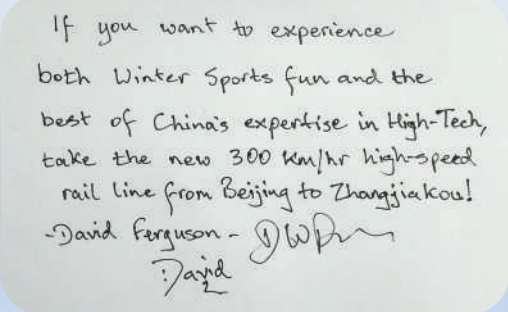 If you want to experience
both Winter Sports fun and the
best of China's expertise in High-Tech,
take the new 300 Km/hr high-speed
rail line from Beijing to Zhangjiakou!
-David Ferguson-
David